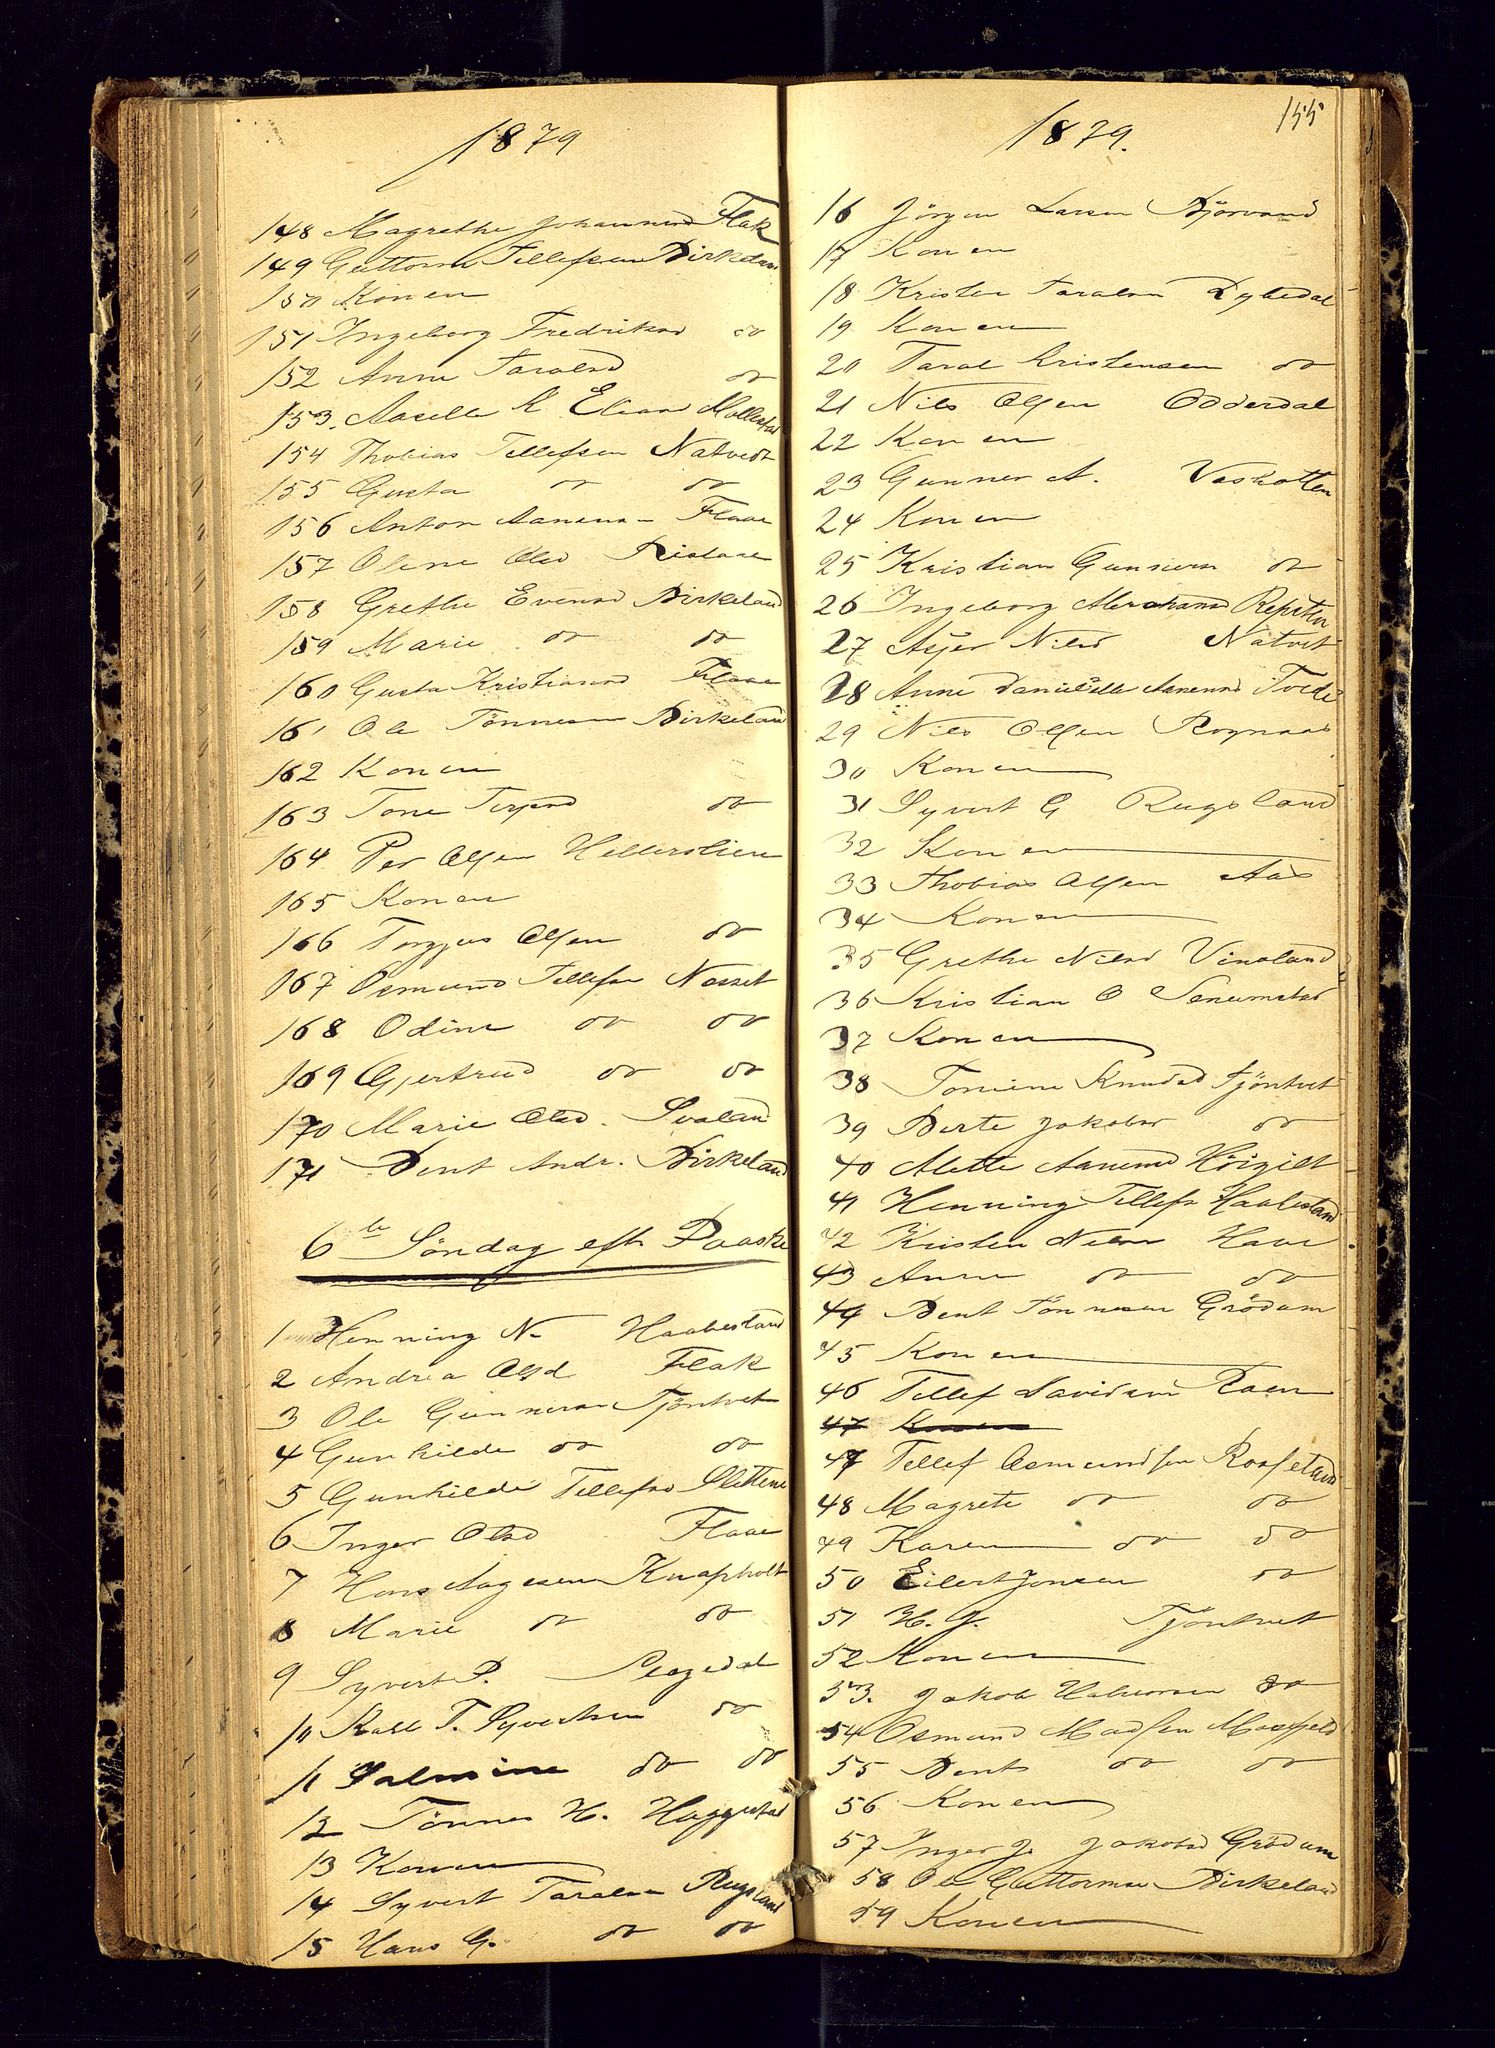 1879
148 Magrethe Johannesd Flak
149 Guttorm Tellefsen Birkelan
150 Konen
151 Ingeborg Fredriksd do
152 Anne Tarald do
153. Aaselle K Elean Mollestad
154 Thobias Tellefsen Natvedt
155 Gusta do do
156 Anton Aanens Flaae
157 Oline Olsd Rislaae
158 Grethe Evensd Birkeland
159 Marie do do
160 Gusta Kristiansd Flaae
161 Ole Tönnesen Birkeland
162 Konen
163 Tone Terjesd do
164 Per Olsen Hellerslien
165 Konen
166 Torgjus Olsen do
167 Osmund Tellefsen Nesset
168 Odine do do
169 Gjertrud do do
170 Marie Olsd. Svaland
171 Bent Andr. Birkeland
6te Söndag efth Paaske
1 Henning N. Haabestand
2 Andrea Olsd Flak
3 Ole Gunnersen Tjöntvet
4 Gunhilde do do
5 Gunhilde Tellefsd Slettene
6 Inger Olsd Flaae
7 Hans Aagesen Knapholt
8 Marie do do
9 Syvert P.
10 Kall T. Syvertsen do
11 Salmine do do
12 Tönnes H. Haggestad
13 Konen
14 Syvert Taralsen Rugsland
15 Hans G. do do
155
1879.
16 Jörgen Larsen Björvand
17 Konen
18 Kristen Taralsen Dybedal
19 Konen
20 Taral Kristensen do
21 Nils Olsen Odderdal
22 Konen
23 Gunner A. Vaskotten
24 Konen
25 Kristian Gunnersen do
26 Ingeborg Abrahamsd Repsten
27 Asjer Nilsd Natvet
28 Anne Danielle Aanensd Tvede
29 Nils Olsen Rognaas
30 Konen
31 Syvert G Rugsland
32 Konen
33 Thobias Olsen Aas
34 Konen
35 Grethe Nilsd Vinaland
36 Kristian O Senumstad
37 Konen
38 Tomine Knudsd Tjöntvet
39 Berte Jakobsd do
40 Alette Aanensd Höigilt
41 Henning Tellefs Haabestand
42 Kristen Nilsen Have
43 Anne do do
44 Bent Tönnesen Grödum
45 Konen
46 Tellef Davidsen Raen
47 Konen
47 Tellef Osmundsen Roofeland
48 Magrete do do
49 Karen do do
50 Eilert Jonsen do
51 H. J. Tjöntvet
52 Konen
53. Jakob Halvorsen do
54 Osmund Madsen Mosfjeld
55 Bent do do
56 Konen
57 Inger J. Jakobsd Grödum
58 Ole Guttormsen Birkeland
59 Konen